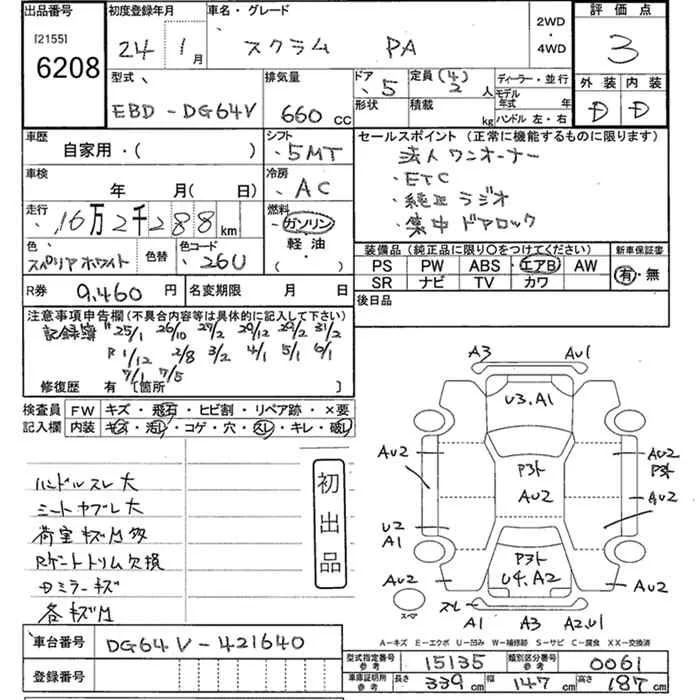 出品番号 [2155] 6208
初度登録年月 24 1月
車名・グレード スクラム PA
2WD・4WD
評価点 3
外装 D 内装 D
型式 EBD-DG64V
排気量 660cc
ドア 5
形状
定員(4) 2人
積載 kg
ディーラー・並行
モデル年式 年
ハンドル 左・右
車歴 自家用・( )
シフト 5MT
車検 年 月(日)
冷房 AC
走行 16万2千288km
燃料 ガソリン 軽油 ( )
色 スペリアホワイト 色替 色コード 26U
R券 9,460円 名変期限 月 日
セールスポイント (正常に機能するものに限ります)
法人ワンオーナー
・ETC
・純正ラジオ
・集中ドアロック
装備品(純正品に限り○をつけてください) 新車保証書
PS PW ABS エアB AW 有・無
SR ナビ TV カワ
後日品
注意事項申告欄(不具合内容等は具体的に記入して下さい)
記録簿 25/1 26/10 27/2 29/12 29/2 31/2
R1/12 2/8 3/2 4/1 5/1 6/1
7/1 7/5
修復歴 有 [箇所 ]
検査員記入欄
FW キズ・飛石・ヒビ割・リペア跡・×要
内装 キズ・汚し・コゲ・穴・スレ・キレ・破し
ハンドルスレ大
シートヤブレ大
荷室キズM多
Rゲートトリム欠損
Dミラーキズ
各キズM
初出品
A3 AU1
U3.A1
AU2 P3ト AU2 P3ト
AU2 AU2
U2 A1
P3ト
U4.A2
AU2 AU2
スペア
スレ A1 A3 A2.U1
A-キズ E-エクボ U-凹み W-補修跡 S-サビ C-腐食 XX-交換済
車台番号 DG64V-421640
登録番号
型式指定番号 参考 15135 類別区分番号 参考 0061
車庫証明用 参考 長さ 339cm 幅 147cm 高さ 187cm